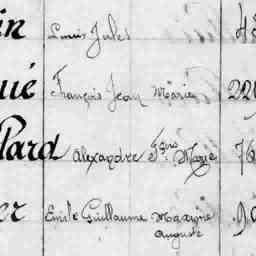 in Louis Jules 4
ué François Jean Marie 220
lard Alexandre Fçois Marie 76
er Emile Guillaume Maxime 90
Auguste